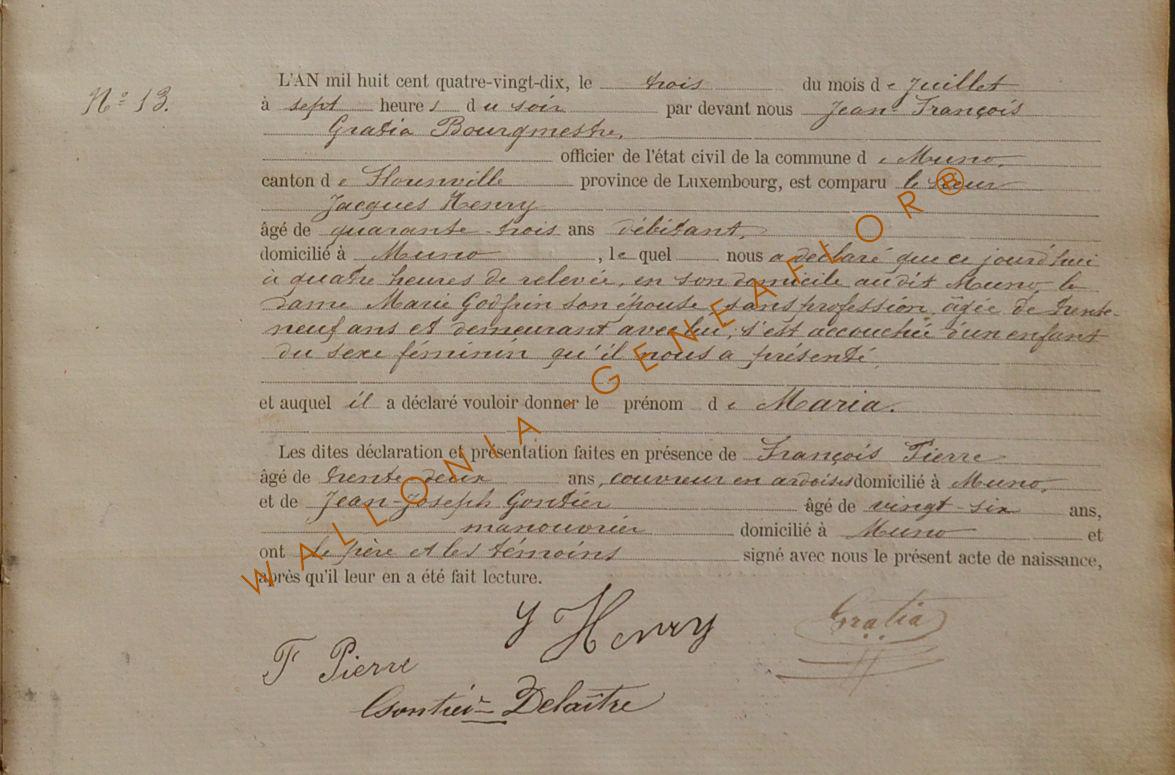 N° 13.
L'AN mil huit cent quatre-vingt-dix, le trois du mois de Juillet
à sept heures du soir par devant nous Jean François
Gratia Bourgmestre,
officier de l'état civil de la commune de Muno,
canton de Florenville province de Luxembourg, est comparu le sieur
Jacques Henry
âgé de quarante-trois ans débitant,
domicilié à Muno, lequel nous a déclaré que ce jourd'hui
à quatre heures de relevée, en son domicile audit Muno, le
dame Marie Godfrin son épouse, sans profession, âgée de trente-
neuf ans et demeurant avec lui, s'est accouchée d'un enfant
du sexe féminin qu'il nous a présenté,
et auquel il a déclaré vouloir donner le prénom de Maria.
Les dites déclaration et présentation faites en présence de François Pierre
âgé de trente-deux ans, couvreur en ardoises domicilié à Muno,
et de Jean-Joseph Gontier âgé de vingt-six ans,
manouvrier domicilié à Muno et
ont le père et les témoins signé avec nous le présent acte de naissance,
après qu'il leur en a été fait lecture.
J Henry
Gratia
F Pierre
Gontier-Delaître
WALLONIA - GENEAFLOR®